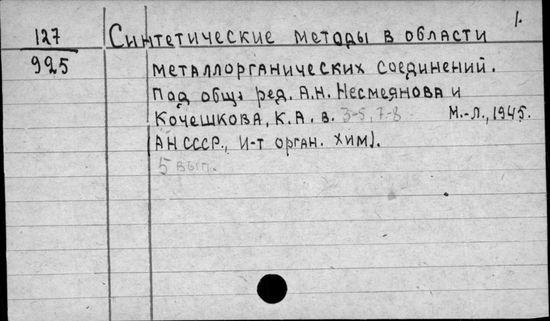 1.
127 Синтетические методы в области
925 металлорганических соединений.
Под общ. ред. А.Н. Несмеянова и
Кочешкова, К.А. в. 3-5, 7-8 М.-Л., 1945.
(АН СССР., И-т орган. хим).
5 вып.